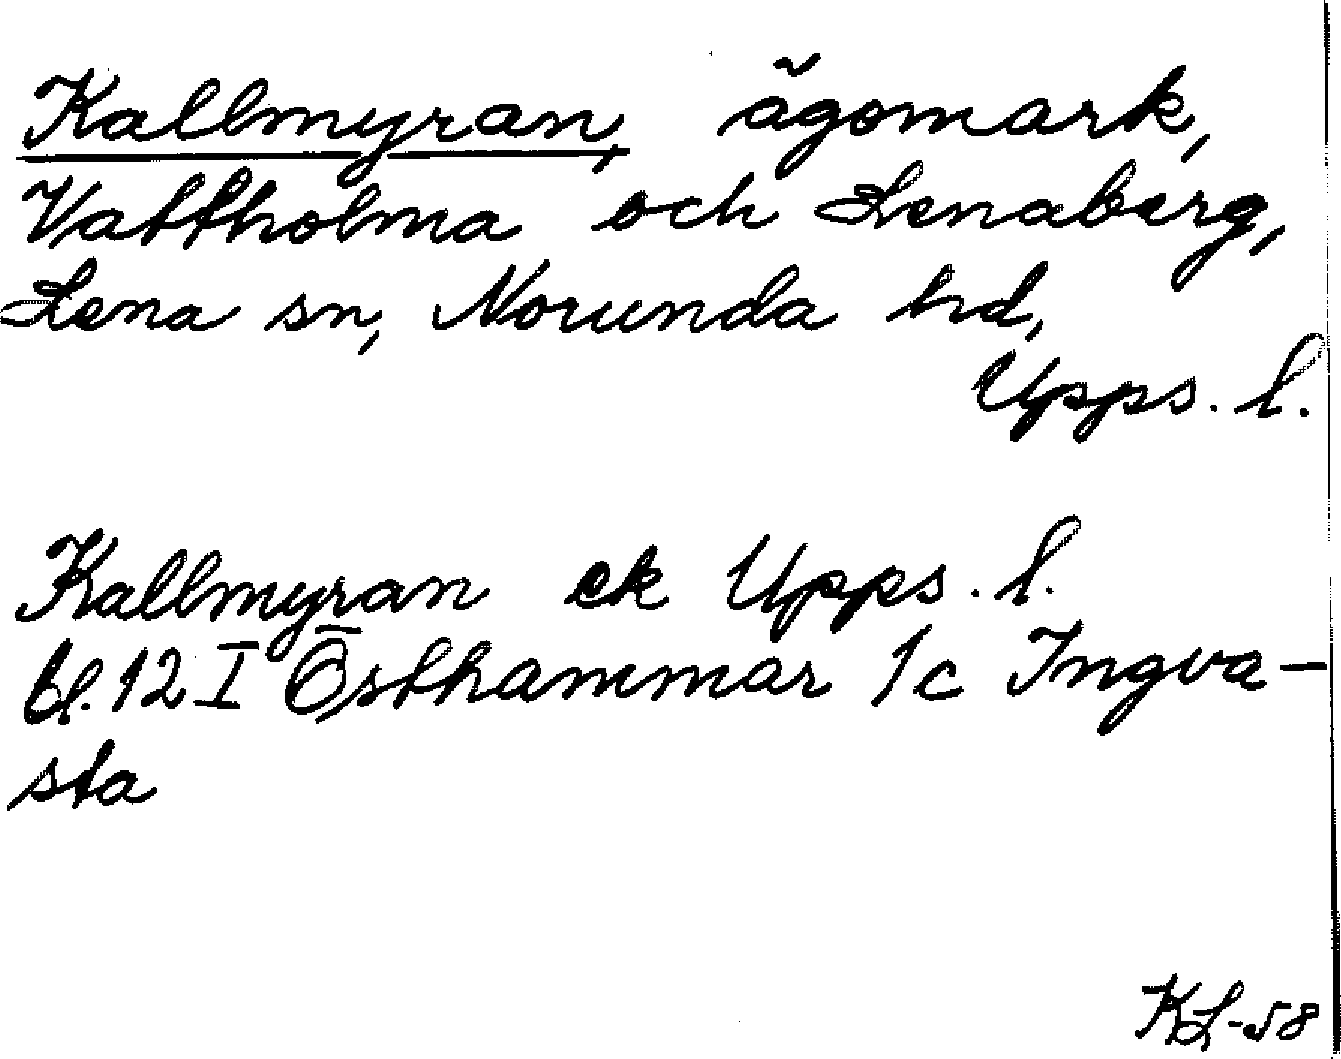 Kallmyran, ägomark,
Vattholma och Lenaberg,
Lena sn, Norunda hd,
Upps. l.
Kallmyran ek Upps. l.
bl. 12 I Östhammar 1c Ingva-
sta
KL-58